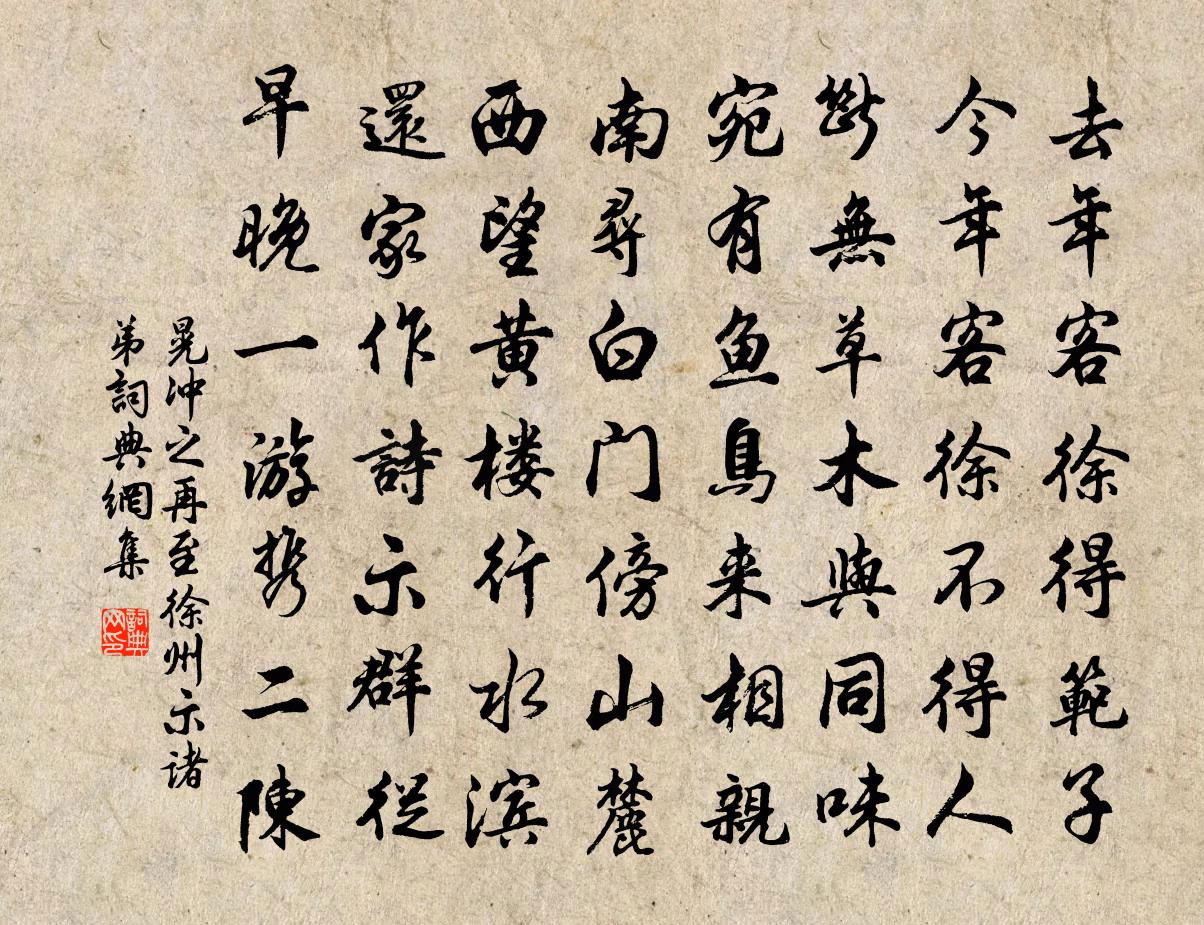 去年客徐得範子
今年客徐不得人
断無草木與同味
宛有魚鳥来相親
南尋白门傍山麓
西望黄楼行水滨
還家作詩示群從
早晚一游携二陳
晃沖之再至徐州示诸
弟詞典網集
詞典
网印